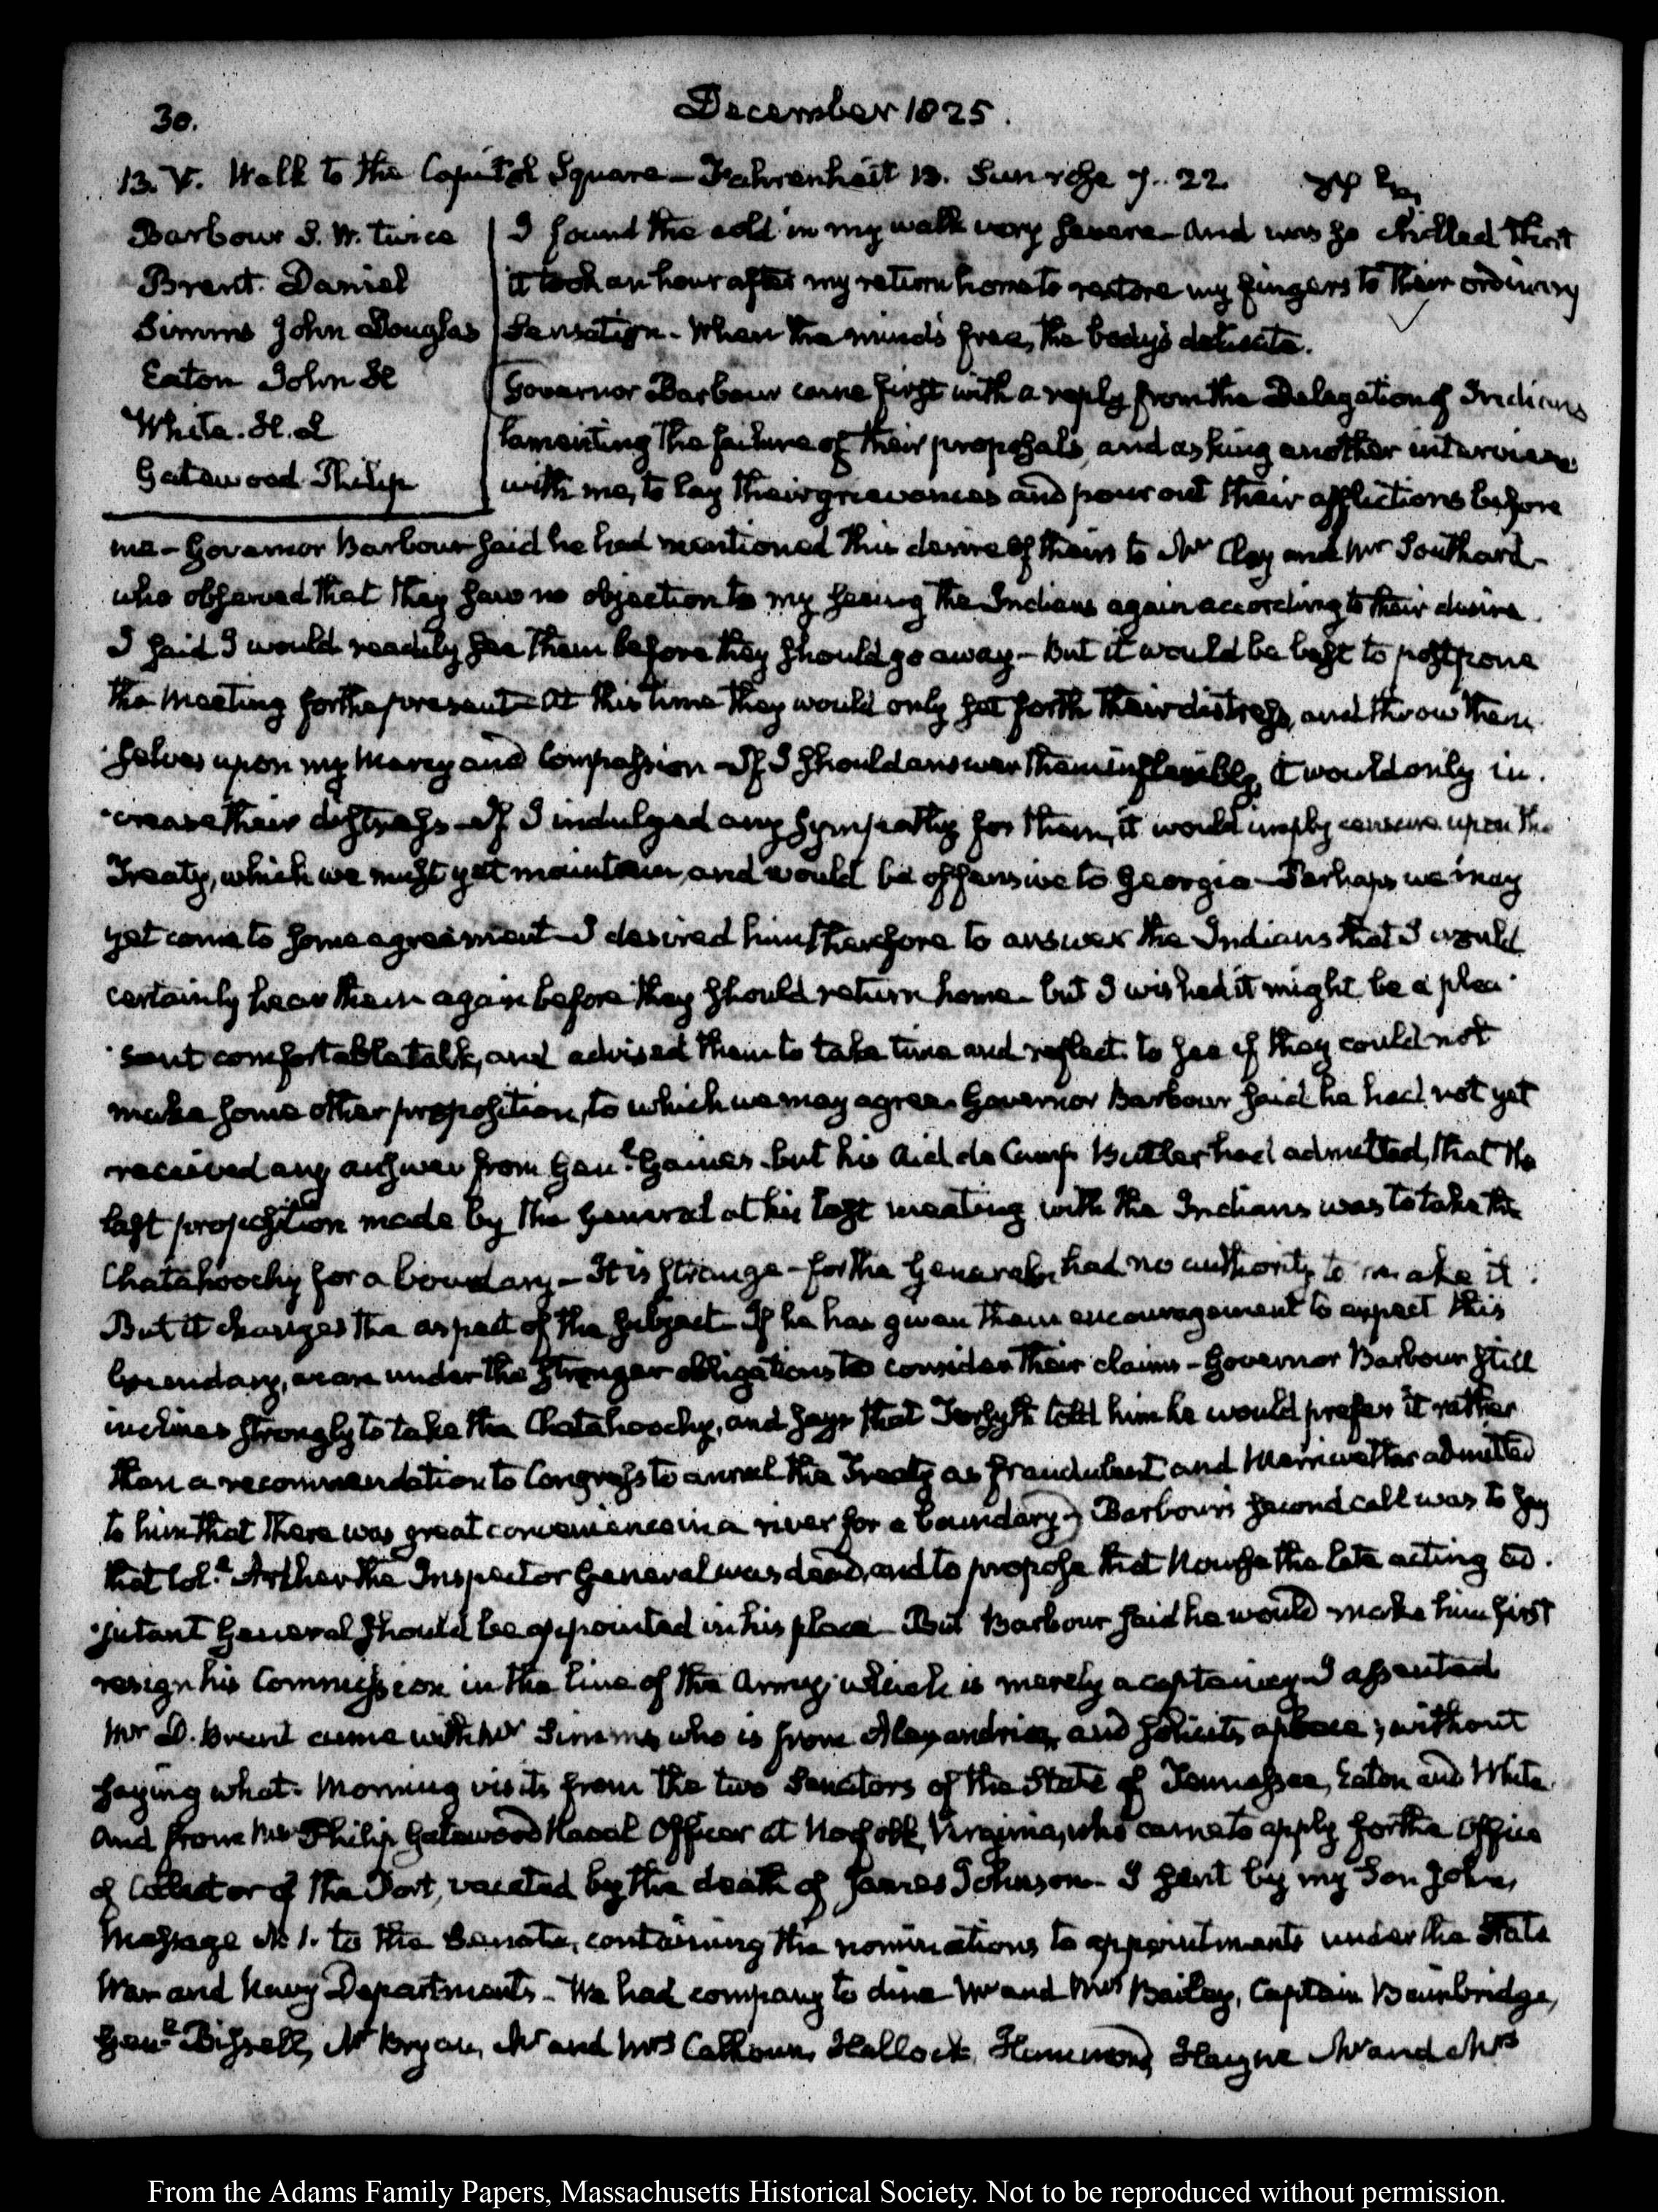 30.
December 1825.
13. V. Walk to the Capitol Square — Fahrenheit 13. Sun rose 7..22.
Barbour S. W. twice
Brent. Daniel
Simms John Douglas
Eaton John H
White. H. L
Gatewood Philip
I found the cold in my walk very severe — And was so chilled that
it took an hour after my return home to restore my fingers to their ordinary
Sensation. When the mind's free, the body's delicate.
Governor Barbour came first with a reply from the Delegation of Indians
lamenting the failure of their proposals, and asking another interview
with me, to lay their grievances and pour out their afflictions before
me — Governor Barbour said he had mentioned this desire of theirs to Mr Clay and Mr Southard —
who observed that they saw no objection to my seeing the Indians again according to their desire.
I said I would readily see them before they should go away — But it would be best to postpone
the meeting for the present — At this time they would only set forth their distress, and throw them
selves upon my Mercy and Compassion — If I should answer them inflexibly, it would only in-
crease their distress — If I indulged any sympathy for them, it would imply censure upon the
Treaty, which we must yet maintain, and would be offensive to Georgia — Perhaps we may
yet come to some agreement — I desired him therefore to answer the Indians that I would
certainly hear them again before they should return home — but I wished it might be a plea-
-sant comfortable talk, and advised them to take time and reflect to see if they could not
make some other proposition, to which we may agree. Governor Barbour said he had not yet
received any answer from Genl. Gaines — but his Aid de Camp Butler had admitted, that the
last proposition made by the General at his last meeting with the Indians was to take the
Chatahoochy for a boundary — It is strange — for the General had no authority to make it.
But it changes the aspect of the subject — If he has given them encouragement to expect this
boundary, we are under the stronger obligations to consider their claims — Governor Barbour still
inclines strongly to take the Chatahoochy, and says that Forsyth told him he would prefer it rather
than a recommendation to Congress to annul the Treaty as fraudulent and Merriwether admitted
to him that there was great convenience in a river for a boundary — Barbour's second call was to say
that Col. Archer the Inspector General was dead, and to propose that Nourse the late acting Ad-
-jutant General should be appointed in his place — But Barbour said he would make him first
resign his Commission in the line of the Army; which is merely a captaincy — I assented
Mr D. Brent came with Mr Simms who is from Alexandria, and solicits a place; without
saying what. Morning visits from the two Senators of the State of Tennessee, Eaton and White.
And from Mr Philip Gatewood Naval Officer at Norfolk, Virginia, who came to apply for the Office
of Collector of the Port, vacated by the death of James Johnson. I sent by my Son John,
Message N. 1. to the Senate, containing the nominations to appointments under the State
War and Navy Departments. We had company to dine Mr and Mrs Bailey, Captain Bainbridge,
Genl. Bissell, Mr Bryan, Mr and Mrs Calhoun, Hallock, Hammond, Hayne Mr and Mrs
From the Adams Family Papers, Massachusetts Historical Society. Not to be reproduced without permission.